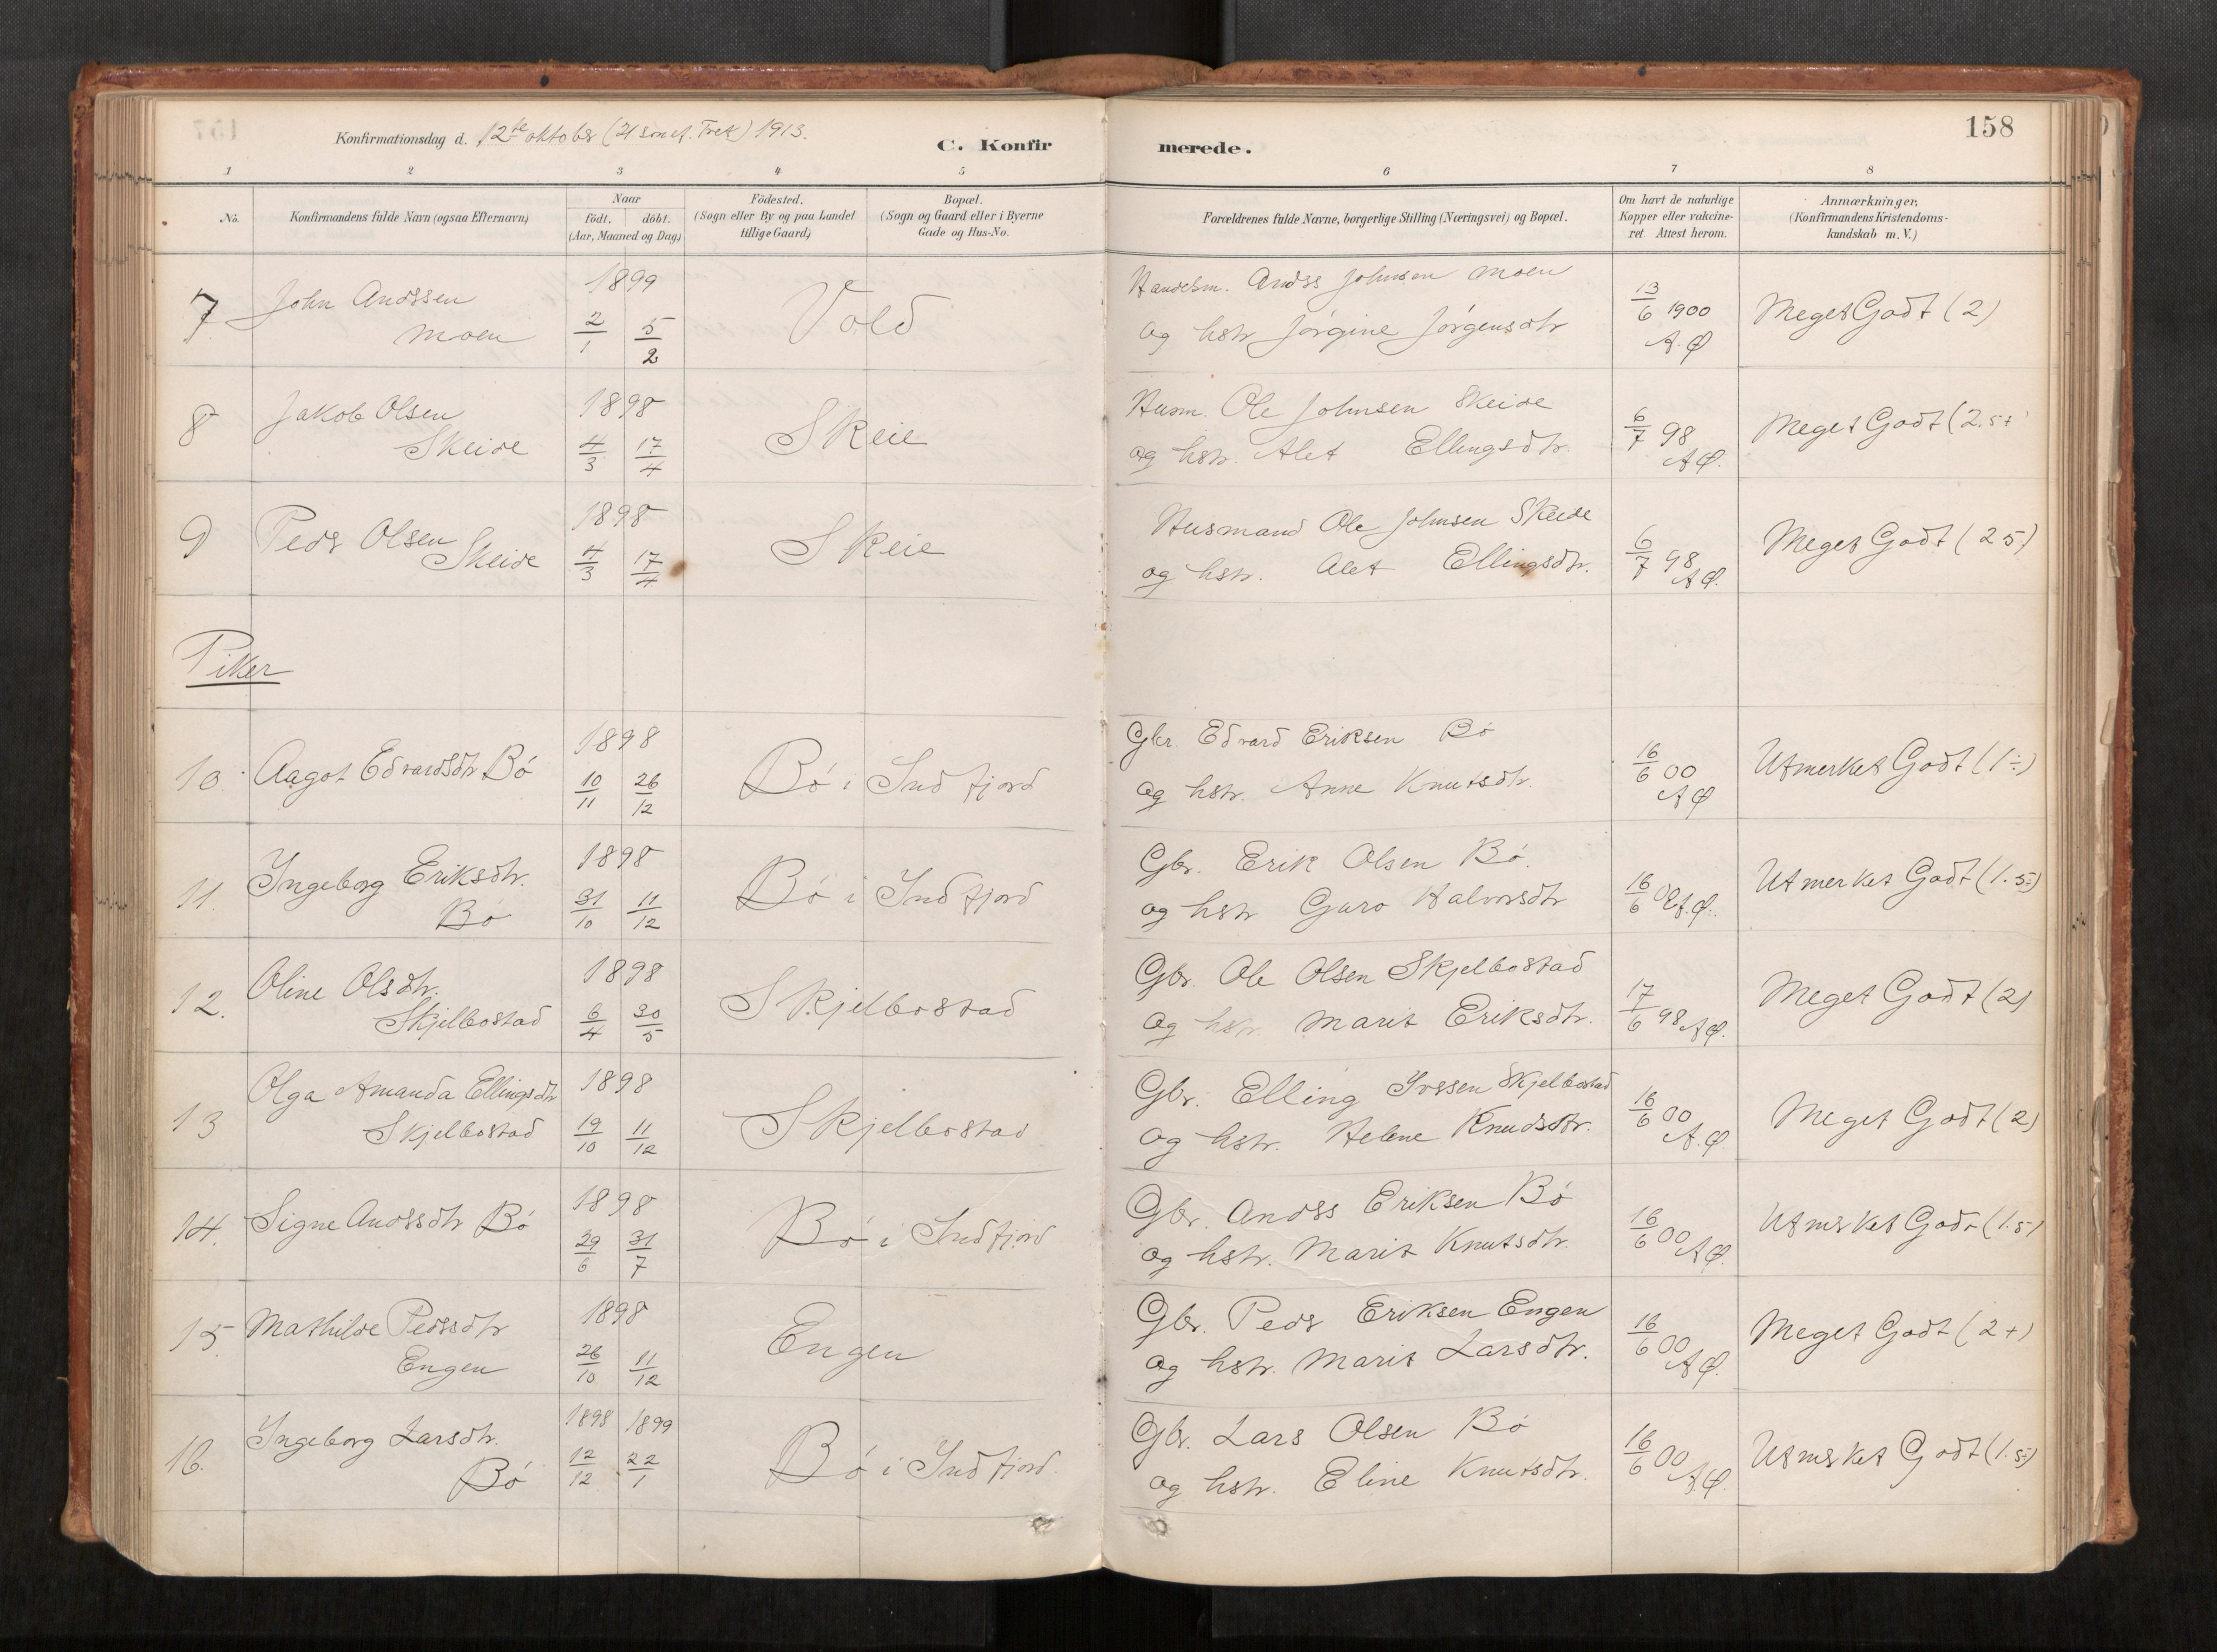 158
Konfirmationsdag d. 12te oktober (21 sön ef. Tref) 1913.
C. Konfir merede.
1 2 3 4 5 6 7 8
No.
Konfirmandens fulde Navn (ogsaa Efternavn)
Naar
födt. döbt.
(Aar, Maaned og Dag)
Födested.
(Sogn eller By og paa Landet
tillige Gaard)
Bopæl.
(Sogn og Gaard eller i Byerne
Gade og Hus-No.
Forældrenes fulde Navne, borgerlige Stilling (Næringsvei) og Bopæl.
Om havt de naturlige
Kopper eller vakcine-
ret. Attest herom.
Anmærkninger.
(Konfirmandens Kristendoms-
kundskab m. V.)
7 John Andssen
Moen
1899
2/1 5/2
Vold
Handelsm. Andss Johnsen Moen
og hstr Jörgine Jörgensdtr
13/6 1900
A. Ø
Meget Godt (2)
8 Jakob Olsen
Skeide
1898
4/3 17/4
Skeie
Husm. Ole Johnsen Skeide
og hstr. Alet Ellingsdtr.
6/7 98
A Ø.
Meget Godt (2.5+
9 Peds Olsen
Skeide
1898
4/3 17/4
Skeie
Husmand Ole Johnsen Skeide
og hstr. Alet Ellingsdtr.
6/7 98
A Ø.
Meget Godt (2 5)
Piker
10. Aagot Edvardsdtr Bö
1898
10/11 26/12
Bö i Indfjord
Gbr. Edvard Eriksen Bö
og hstr. Anne Knutsdtr.
16/6 00
A Ø
Utmerket Godt (1÷)
11. Ingeborg Eriksdtr.
Bö
1898
31/10 11/12
Bö i Indfjord
Gbr. Erik Olsen Bö.
og hstr Guro Halvorsdtr
16/6 00 A. Ø.
Utmerket Godt (1.5÷)
12. Oline Olsdtr.
Skjelbostad
1898
6/4 30/5
Skjelbostad
Gbr. Ole Olsen Skjelbostad
og hstr. Marit Eriksdtr.
17/6 98 A Ø.
Meget Godt (2)
13 Olga Amanda Ellingsdtr
Skjelbostad
1898
19/10 11/12
Skjelbostad
Gbr. Elling Ivssen Skjelbostad
og hstr. Helene Knudsdtr.
16/6 00
A. Ø
Meget Godt (2)
14. Signe Andssdtr Bö
1898
29/6 31/7
Bö i Indfjord
Gbr. Andss Eriksen Bö
og hstr. Marit Knutsdtr.
16/6 00 A Ø.
Utmsket Godt (1.5)
15. Mathilde Pedssdtr
Engen
1898
26/10 11/12
Engen
Gbr. Peds Eriksen Engen
og hstr. Marit Larsdtr.
16/6 00
A Ø.
Meget Godt (2+)
16. Ingeborg Larsdtr.
Bö
1898 1899
12/12 22/1
Bö i Indfjord.
Gbr. Lars Olsen Bö
og hstr. Eline Knutsdtr.
16/6 00
A. Ø.
Utmsket Godt (1.5÷)